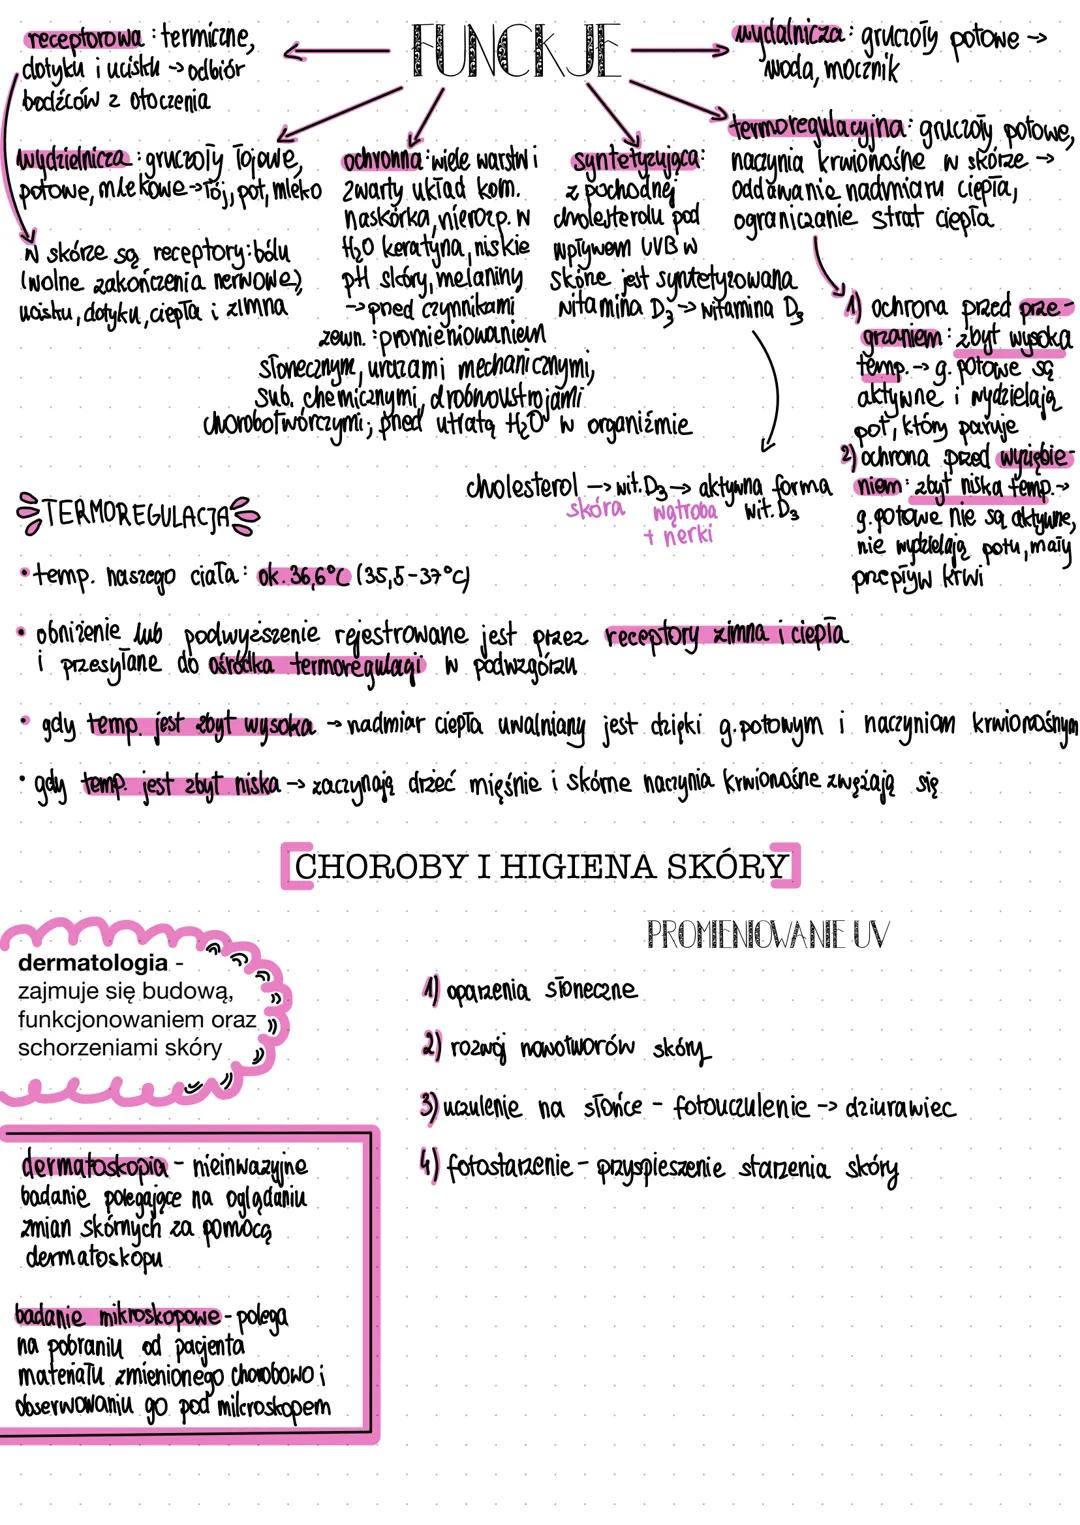 FUNCKJE
receptorowa : termiczne,
dotyku i ucisku → odbiór
bodźców z otoczenia
wydalnicza : gruczoły potowe →
woda, mocznik
wydzielnicza : gruczoły łojowe,
potowe, mlekowe → łój, pot, mleko
W skórze są receptory: bólu
(wolne zakończenia nerwowe),
ucisku, dotyku, ciepła i zimna
ochronna : wiele warstw i
zwarty układ kom.
naskórka, nierozp. w
H₂O keratyna, niskie
pH skóry, melaniny
→ przed czynnikami
zewn. : promieniowaniem
słonecznym, urazami mechanicznymi,
sub. chemicznymi, drobnoustrojami
chorobotwórczymi; przed utratą H₂O w organizmie
syntetyzująca:
z pochodnej
cholesterolu pod
wpływem UVB w
skórze jest syntetyzowana
witamina D₃ → witamina D₃
cholesterol → wit. D₃ → aktywna forma
wit. D₃
skóra
wątroba
+ nerki
termoregulacyjna: gruczoły potowe,
naczynia krwionośne w skórze →
oddawanie nadmiaru ciepła,
ograniczanie strat ciepła
1) ochrona przed prze-
grzaniem : zbyt wysoka
temp. → g. potowe są
aktywne i wydzielają
pot, który paruje
2) ochrona przed wyziębie-
niem : zbyt niska temp. →
g. potowe nie są aktywne,
nie wydzielają potu, mały
przepływ krwi
TERMOREGULACJA
• temp. naszego ciała: ok. 36,6°C (35,5-37°C)
• obniżenie lub podwyższenie rejestrowane jest przez receptory zimna i ciepła
i przesyłane do ośrodka termoregulacji w podwzgórzu
• gdy temp. jest zbyt wysoka → nadmiar ciepła uwalniany jest dzięki g. potowym i naczyniom krwionośnym
• gdy temp. jest zbyt niska → zaczynają drżeć mięśnie i skórne naczynia krwionośne zwężają się
CHOROBY I HIGIENA SKÓRY
dermatologia -
zajmuje się budową,
funkcjonowaniem oraz
schorzeniami skóry
dermatoskopia - nieinwazyjne
badanie polegające na oglądaniu
zmian skórnych za pomocą
dermatoskopu
badanie mikroskopowe - polega
na pobraniu od pacjenta
materiału zmienionego chorobowo i
obserwowaniu go pod mikroskopem
PROMIENIOWANIE UV
1) oparzenia słoneczne
2) rozwój nowotworów skóry
3) uczulenie na słońce - fotouczulenie → dziurawiec
4) fotostarzenie - przyspieszenie starzenia skóry